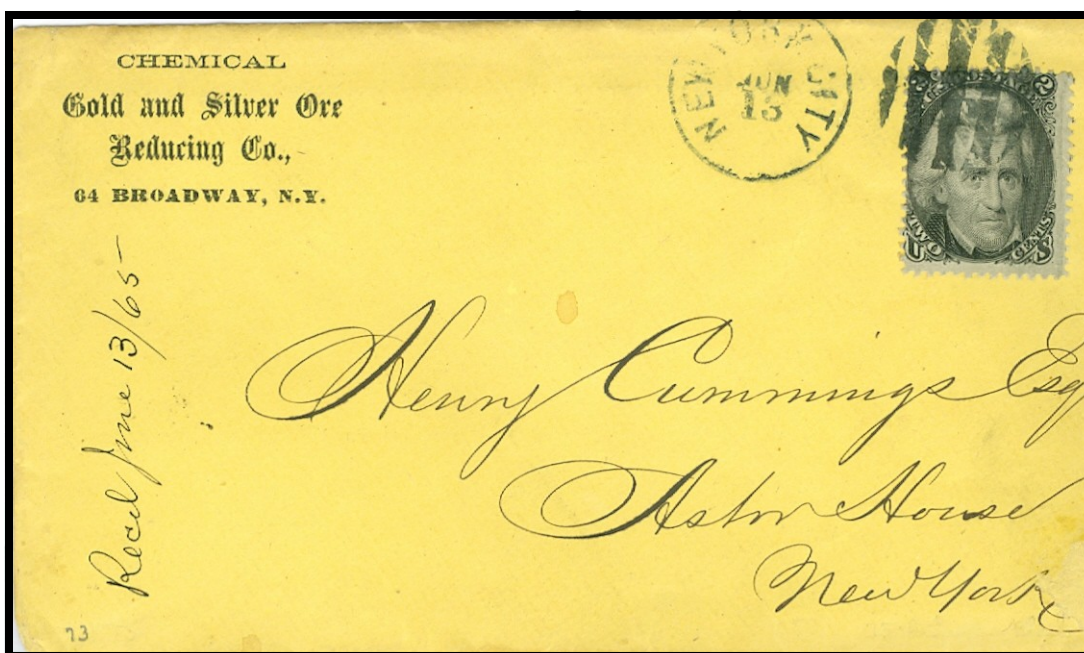 CHEMICAL
Gold and Silver Ore
Reducing Co.,
64 BROADWAY, N.Y.
NEW YORK CITY
JUN
13
2 2
TWO CENTS
U S
Recd June 13/65
Henry Cummings Esq
Astor House
New York
73